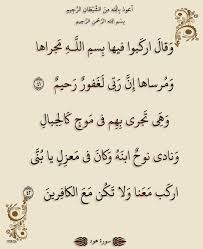 اعوذ بالله من الشيطان الرجيم
بسم الله الرحمن الرحيم
وَقالَ اركَبوا فيها بِسمِ اللَّـهِ مَجراها
وَمُرساها إِنَّ رَبّى لَغَفورٌ رَحيمٌ ﴿٤١﴾
وَهِىَ تَجرى بِهِم فى مَوجٍ كَالجِبالِ
وَنادى نوحٌ ابنَهُ وَكانَ فى مَعزِلٍ يا بُنَىَّ
اركَب مَعَنا وَلا تَكُن مَعَ الكافِرينَ ﴿٤٢﴾
سورة هود